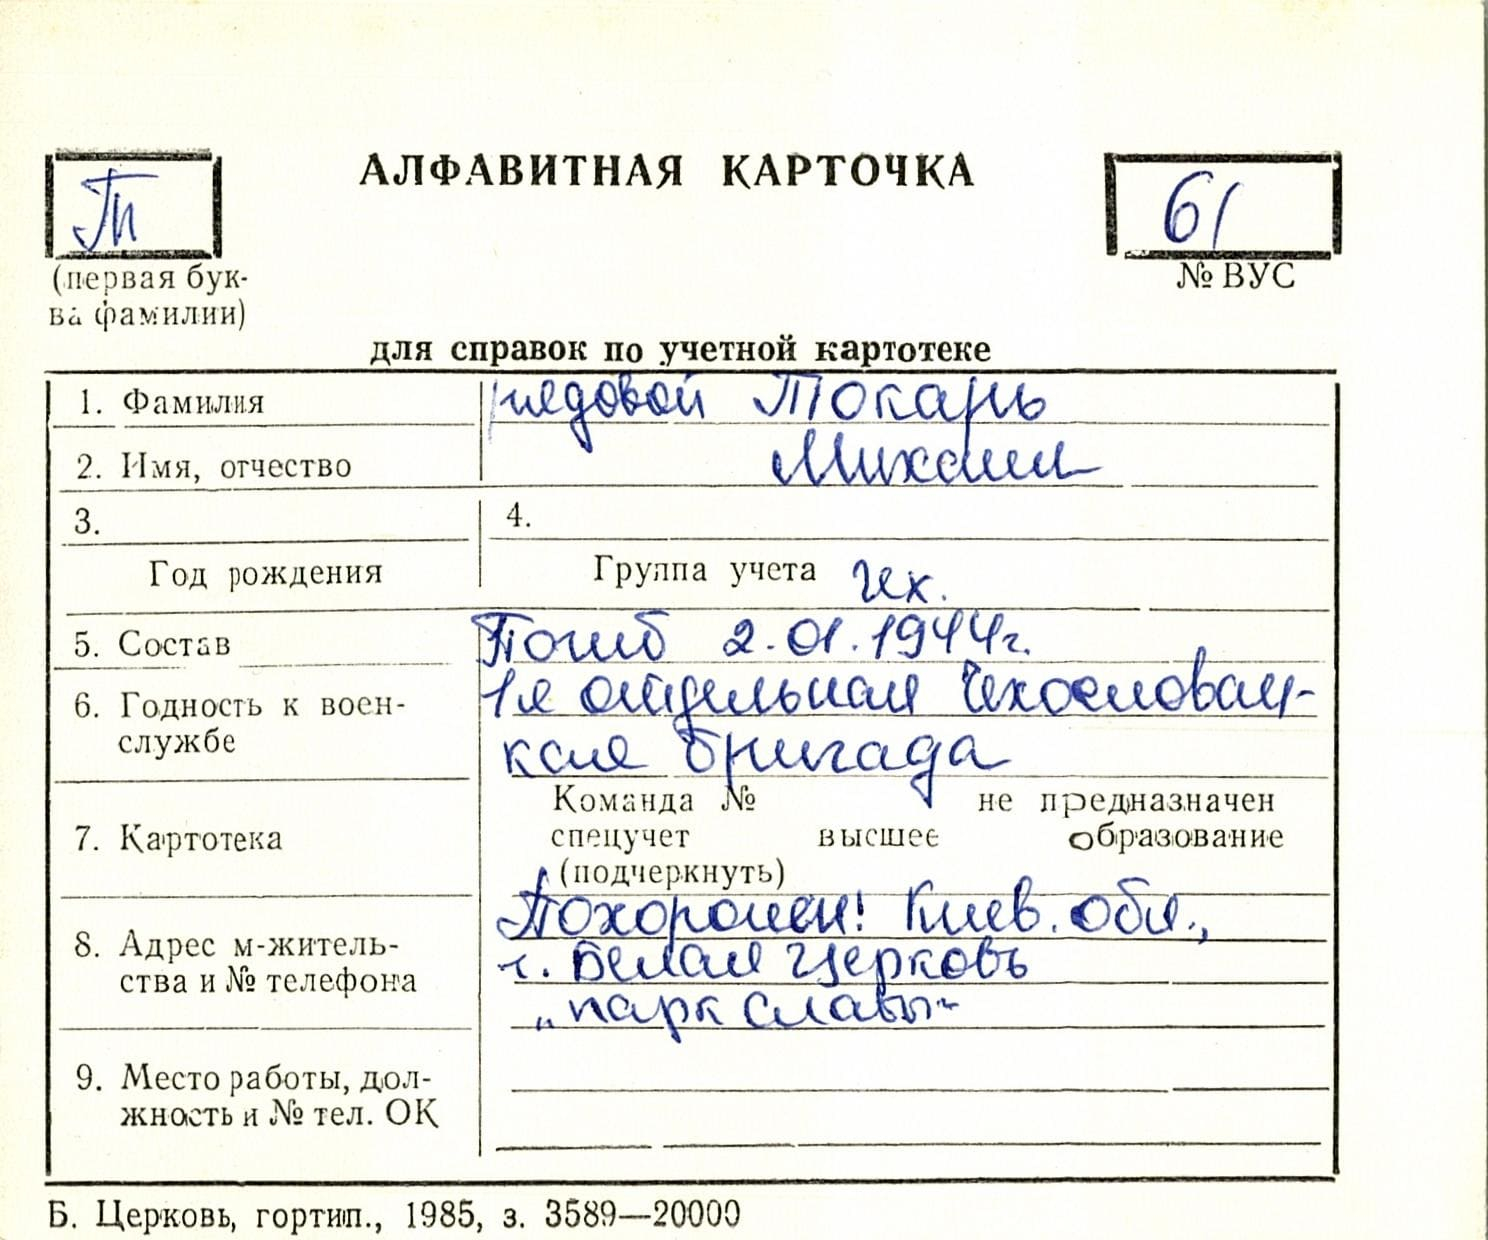 Т
АЛФАВИТНАЯ КАРТОЧКА
61
(первая бук-
ва фамилии)
№ ВУС
для справок по учетной картотеке
1. Фамилия рядовой Токарь
2. Имя, отчество Михаил
3. 4.
Год рождения Группа учета чех.
5. Состав Погиб 2.01.1944г.
6. Годность к воен-
службе
1я отдельная Чехословац-
кая бригада
7. Картотека
Команда № не предназначен
спецучет высшее образование
(подчеркнуть)
8. Адрес м-житель-
ства и № телефона
Похоронен! Киев. обл.,
г. Белая Церковь
„парк Славы“
9. Место работы, дол-
жность и № тел. ОК
Б. Церковь, гортип., 1985, з. 3589—20000